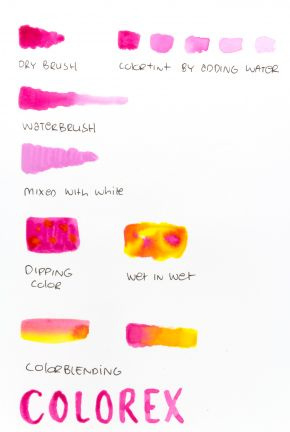 DRY BRUSH
COLORTINT BY ADDING WATER
WATERBRUSH
MIXED WITH WHITE
DIPPING
COLOR
WET IN WET
COLORBLENDING
COLOREX